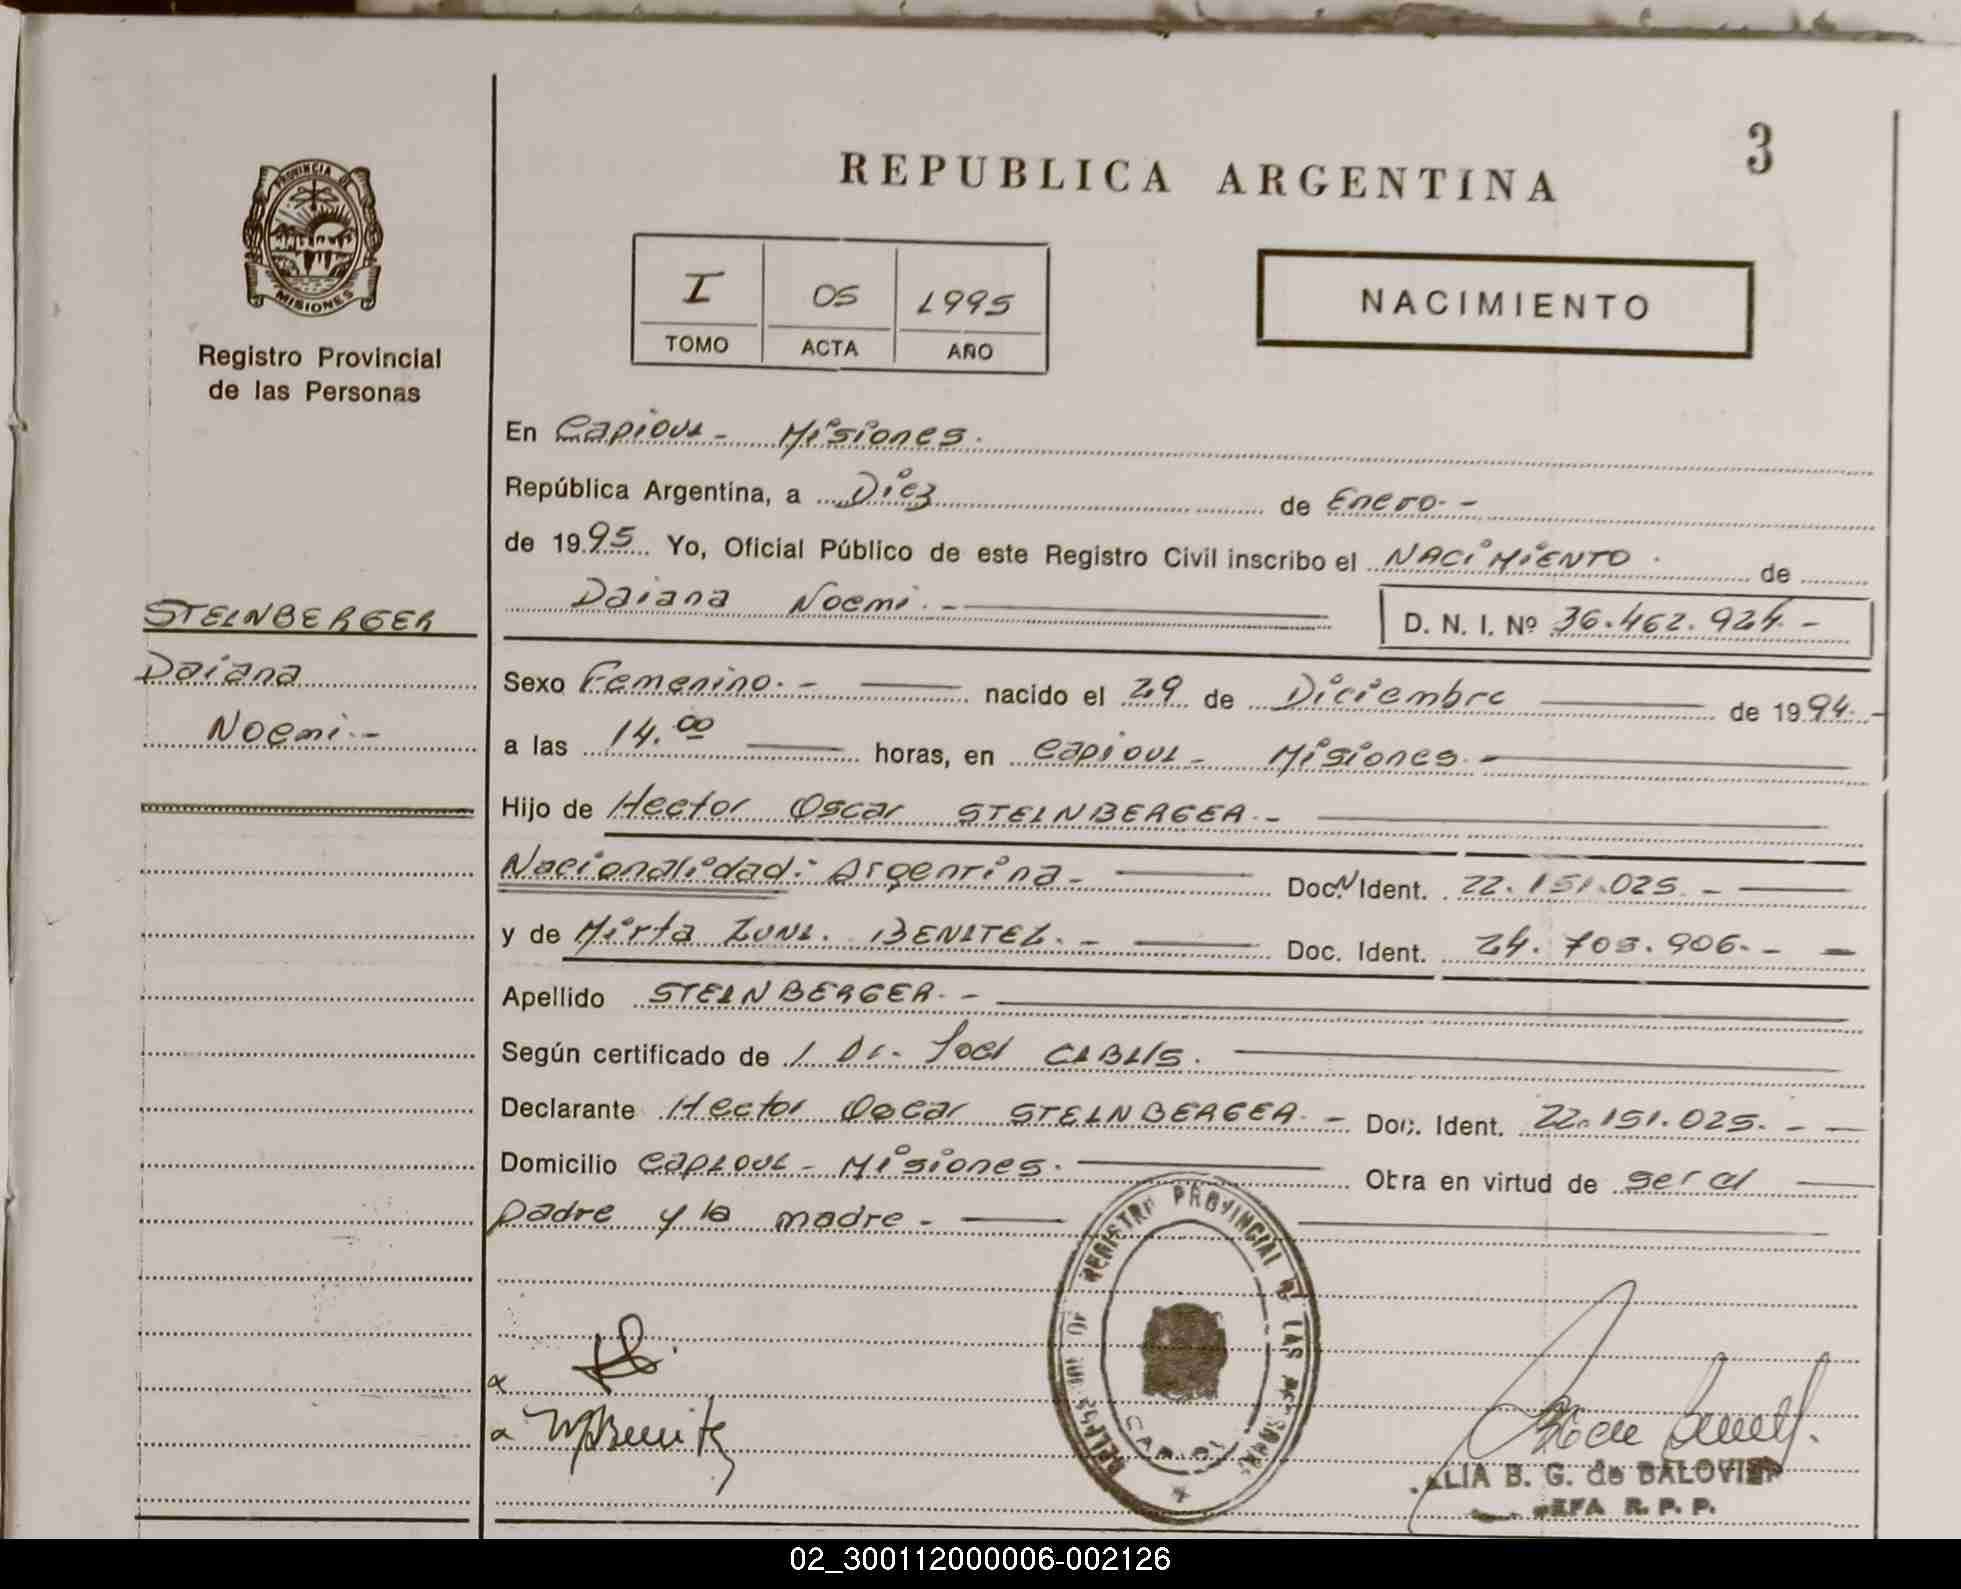 3
REPUBLICA ARGENTINA
PROVINCIA DE
MISIONES
Registro Provincial
de las Personas
I 05 1995
TOMO ACTA AÑO
NACIMIENTO
En Capiovi - Misiones.
República Argentina, a Diez de Enero. -
de 1995 Yo, Oficial Público de este Registro Civil inscribo el NACIMIENTO. de
Daiana Noemi. - D. N. I. Nº 36.462.924. -
STEINBERGER
Daiana
Noemi. -
Sexo Femenino. - nacido el 29 de Diciembre de 1994. -
a las 14.00 horas, en Capiovi - Misiones. -
Hijo de Hector Oscar STEINBERGER. -
Nacionalidad: Argentina - Doc. Ident. 22.151.025. -
y de Mirta BENITEZ. - Doc. Ident. 24.705.906. - -
Apellido STEINBERGER. -
Según certificado de / Dr. Joel
Declarante Hector Oscar STEINBERGER. - Doc. Ident. 22.151.025. - -
Domicilio Capiovi - Misiones. Obra en virtud de ser el
padre y la madre -
REGISTRO PROVINCIAL DE LAS
LIA B. G. de
JEFA R. P. P.
02_300112000006-002126